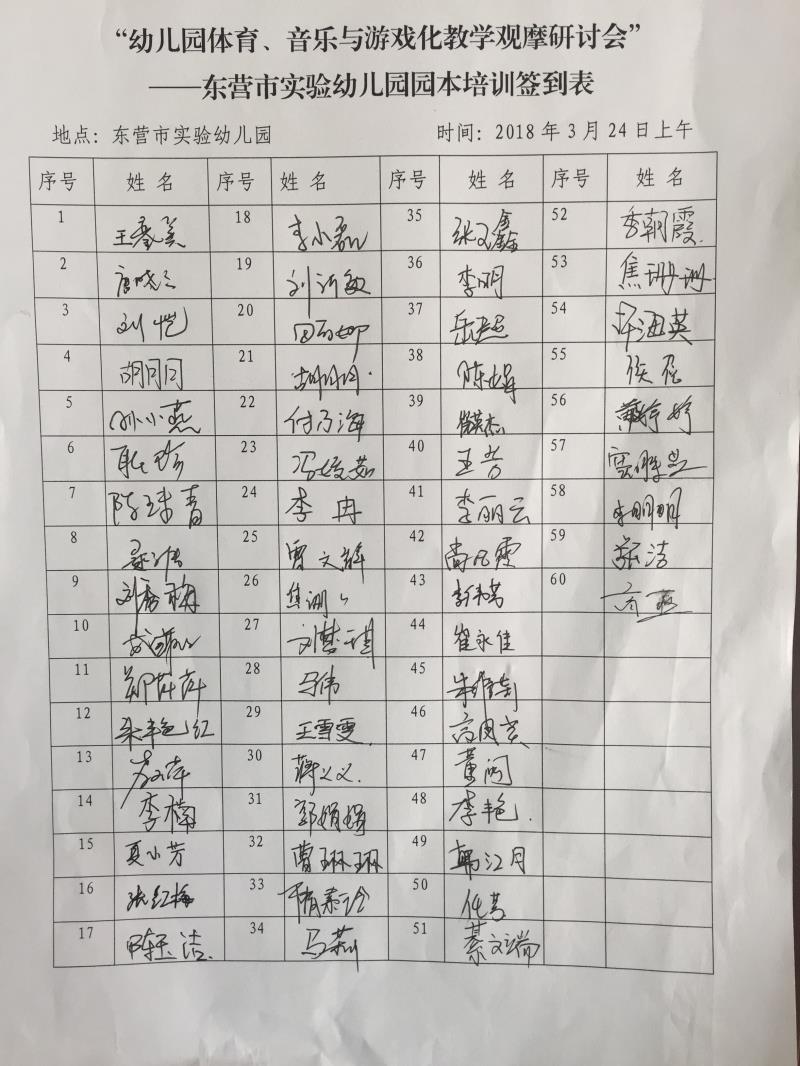 “幼儿园体育、音乐与游戏化教学观摩研讨会”
——东营市实验幼儿园园本培训签到表
地点：东营市实验幼儿园 时间：2018年3月24日上午
序号 姓名 序号 姓名 序号 姓名 序号 姓名
1 18 李小磊 35 张 鑫 52 李朝霞
2 唐晓 19 刘沂敏 36 李明 53 焦珊珊
3 刘恺 20 田 37 岳超 54 海英
4 胡月月 21 胡月月 38 陈 55 侯磊
5 孙小燕 22 付乃海 39 英杰 56 戴婷婷
6 耿珍 23 冯媛茹 40 王芳 57
7 陈琳青 24 李冉 41 李丽云 58 李明明
8 25 曹文 42 尚凡霞 59 洁
9 刘秀梅 26 焦珊〃 43 60 高燕
10 27 刘梦琪 44 崔永佳
11 郑萍萍 28 马伟 45 朱
12 梁艳红 29 王雪雯 46 高国
13 萍 30 蒋义义 47 黄闪
14 李楠 31 郭娟娟 48 李艳
15 夏小芳 32 曹琳琳 49 韩江月
16 张红梅 33 隋 玲 50 任芳
17 陈玉洁 34 马莉 51 綦文端